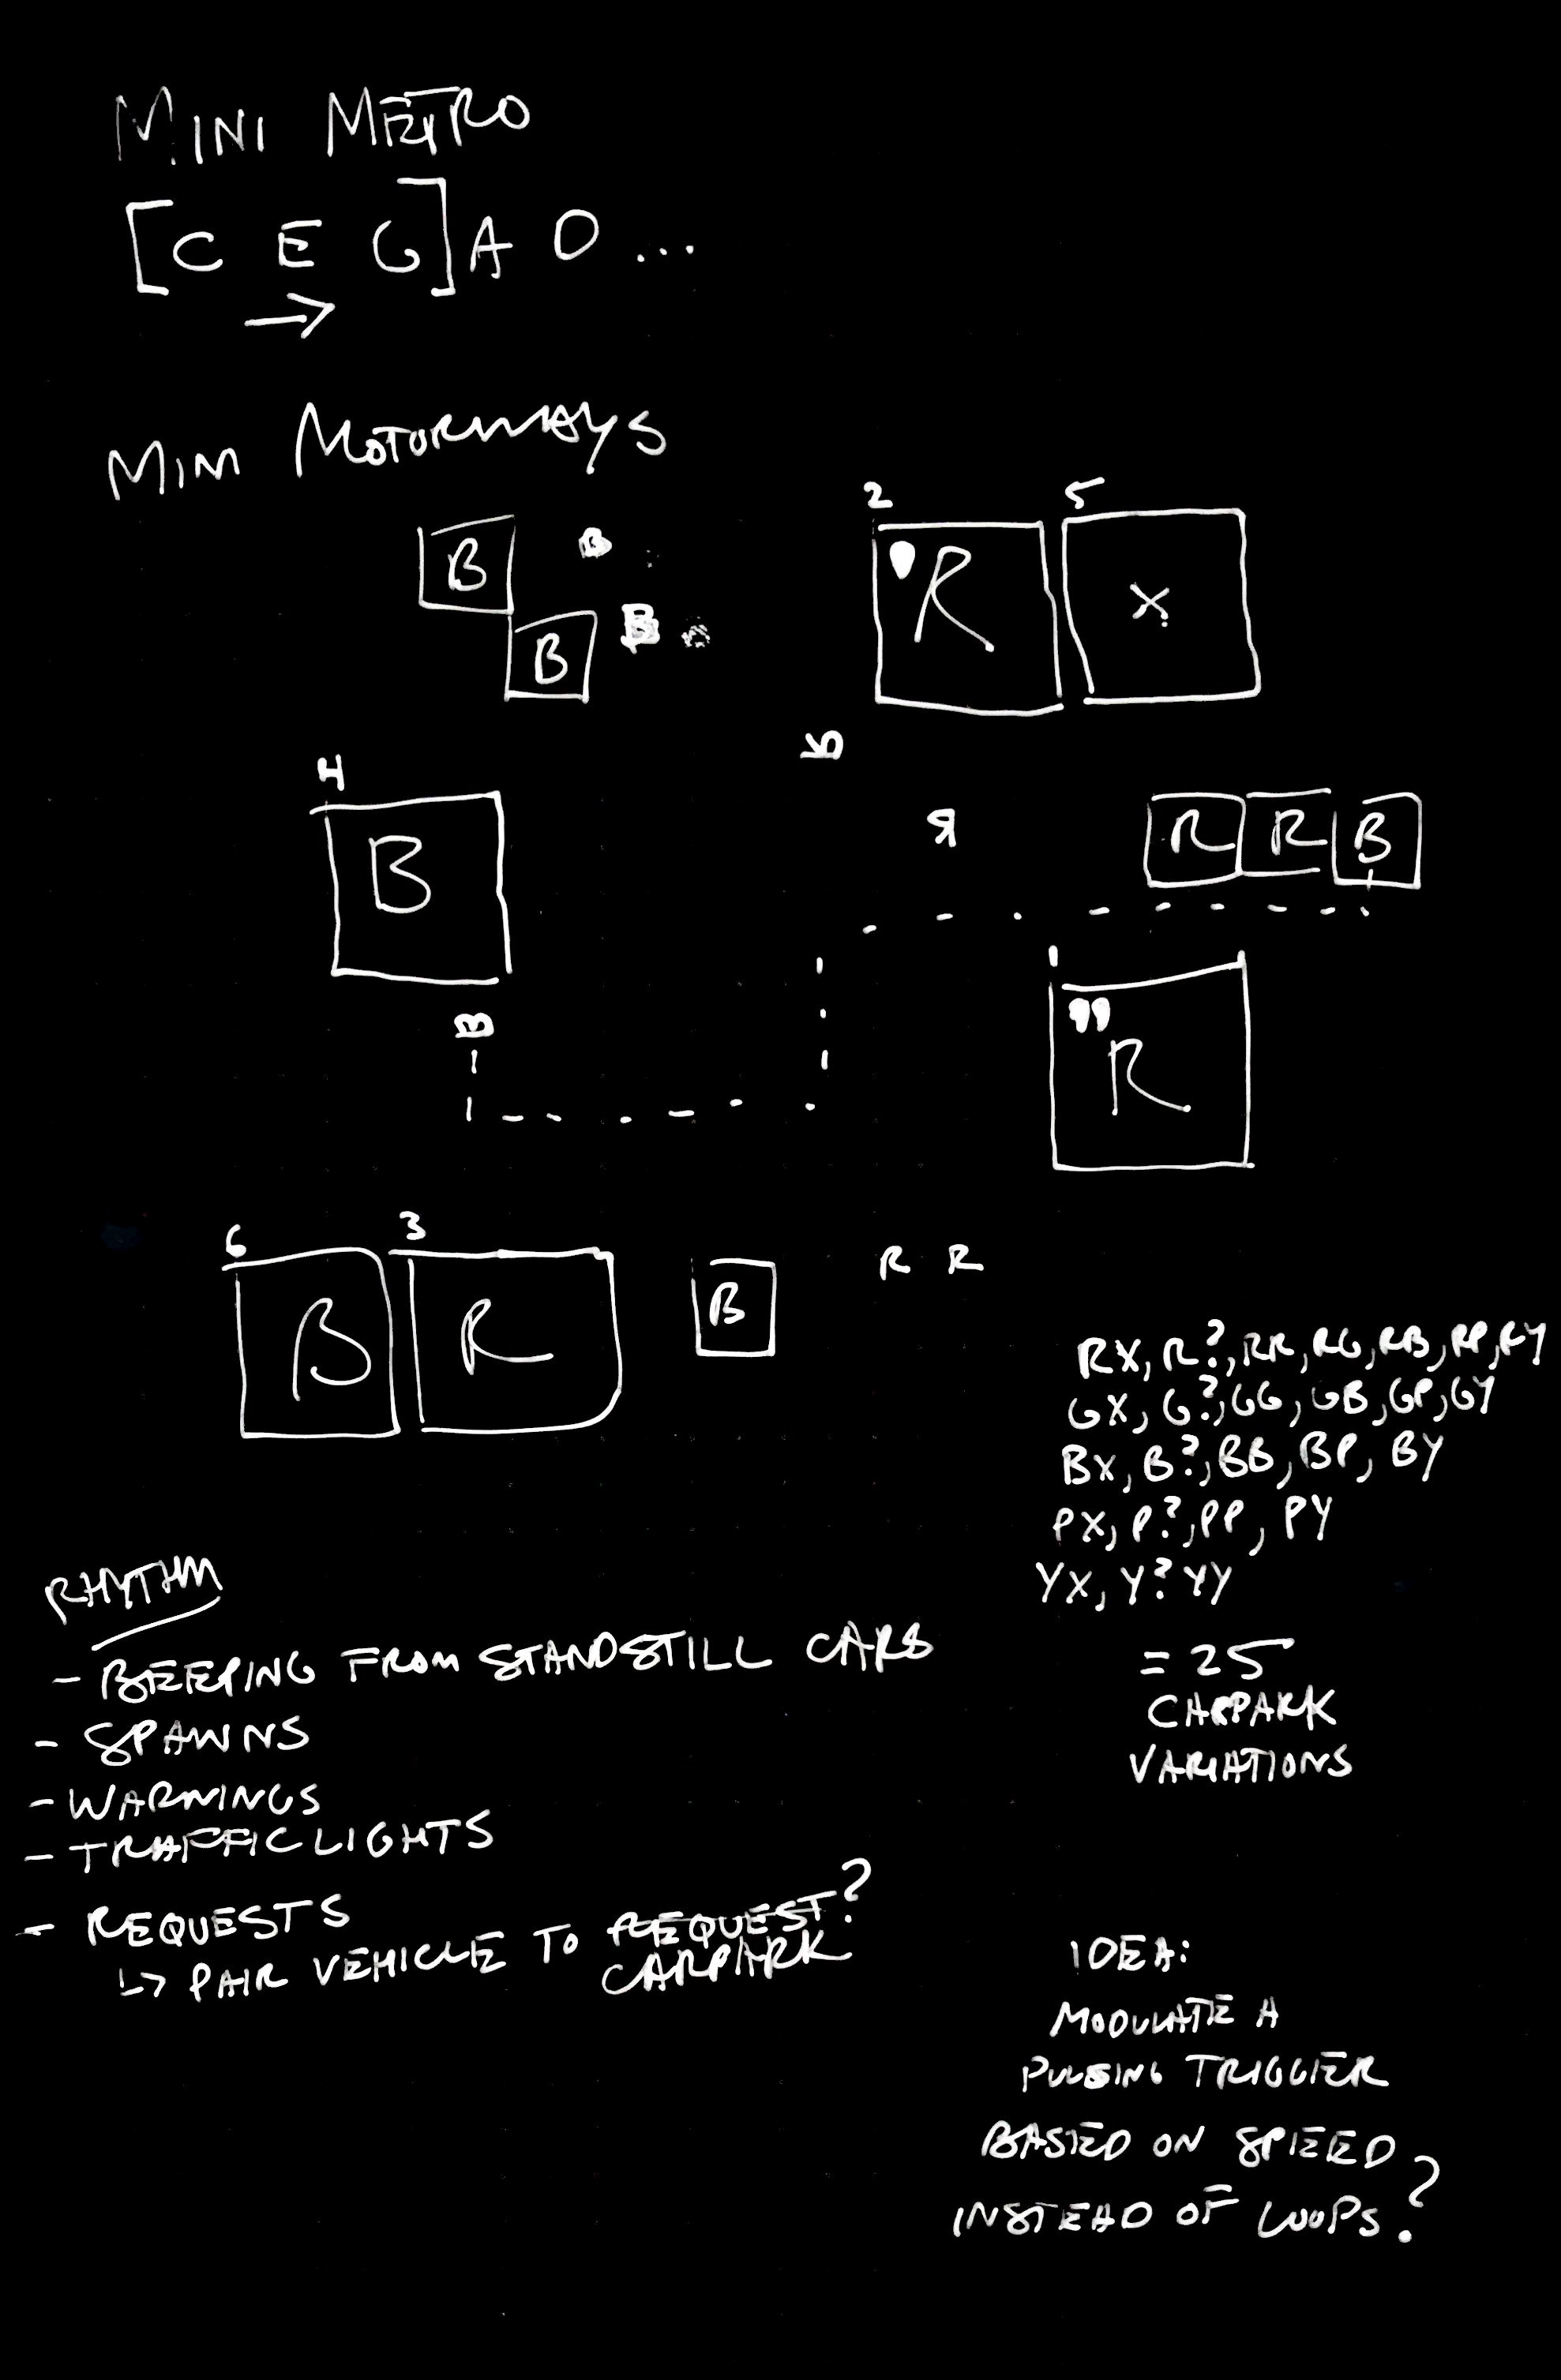 MINI METRO
[C E G] A D ...
→
MINI MOTORWAYS
2 5
B B
R X
B B
R
4
R
R R B
B
1
B
R
6 3
R R
B R B
RX, R?, RR, RG, RB, RP, RY
GX, G?, GG, GB, GP, GY
BX, B?, BB, BP, BY
PX, P?, PP, PY
YX, Y? YY
= 25
CARPARK
VARIATIONS
RHYTHM
- BEEPING FROM STANDSTILL CARS
- SPAWNS
- WARNINGS
- TRAFFIC LIGHTS
- REQUESTS
↳ PAIR VEHICLE TO REQUEST?
CARPARK
IDEA:
MODULATE A
PULSING TRIGGER
BASED ON SPEED
INSTEAD OF LOOPS?